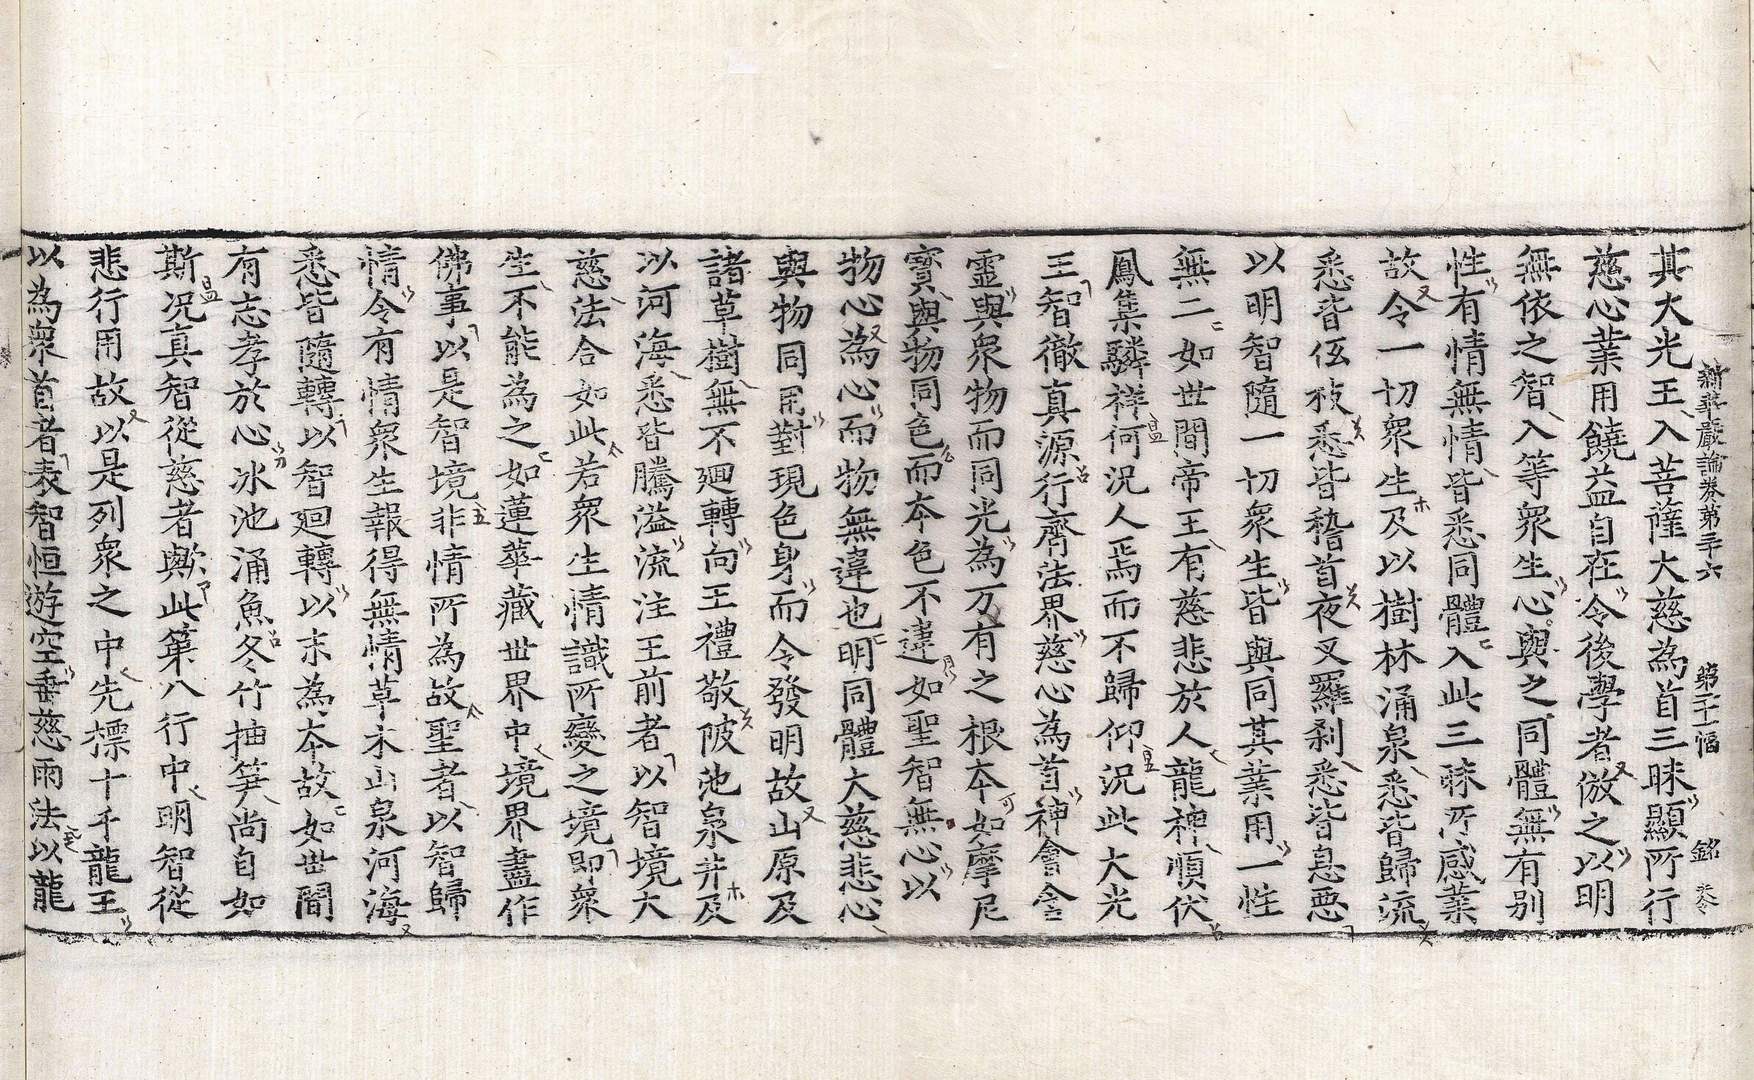 新華嚴論卷第三十六 第二十一幅 銘
其大光王入菩薩大慈為首三昧顯所行
慈心業用饒益自在令後學者倣之以明
無依之智入等衆生心與之同體無有別
性有情無情皆悉同體入此三昧所感業
故令一切衆生及以樹林涌泉悉皆歸流
悉皆低枝悉皆稽首夜叉羅刹悉皆息惡
以明智隨一切衆生皆與同其業用一性
無二如世間帝王有慈悲於人龍神順伏
鳳集驎祥何況人焉而不歸仰況此大光
王智徹真源行齊法界慈心為首神會含
靈與衆物而同光為万有之根本如摩尼
寶與物同色而本色不違如聖智無心以
物心為心而物無違也明同體大慈悲心
與物同用對現色身而令發明故山原及
諸草樹無不迴轉向王禮敬陂池泉井及
以河海悉皆騰溢流注王前者以智境大
慈法合如此若衆生情識所變之境即衆
生不能為之如蓮華藏世界中境界盡作
佛事以是智境非情所為故聖者以智歸
情令有情衆生報得無情草木山泉河海
悉皆隨轉以智迴轉以末為本故如世間
有志孝於心冰池涌魚冬竹抽笋尚自如
斯況真智從慈者歟此第八行中明智從
悲行用故以是列衆之中先標十千龍王
以為衆首者表智恒遊空垂慈雨法以龍